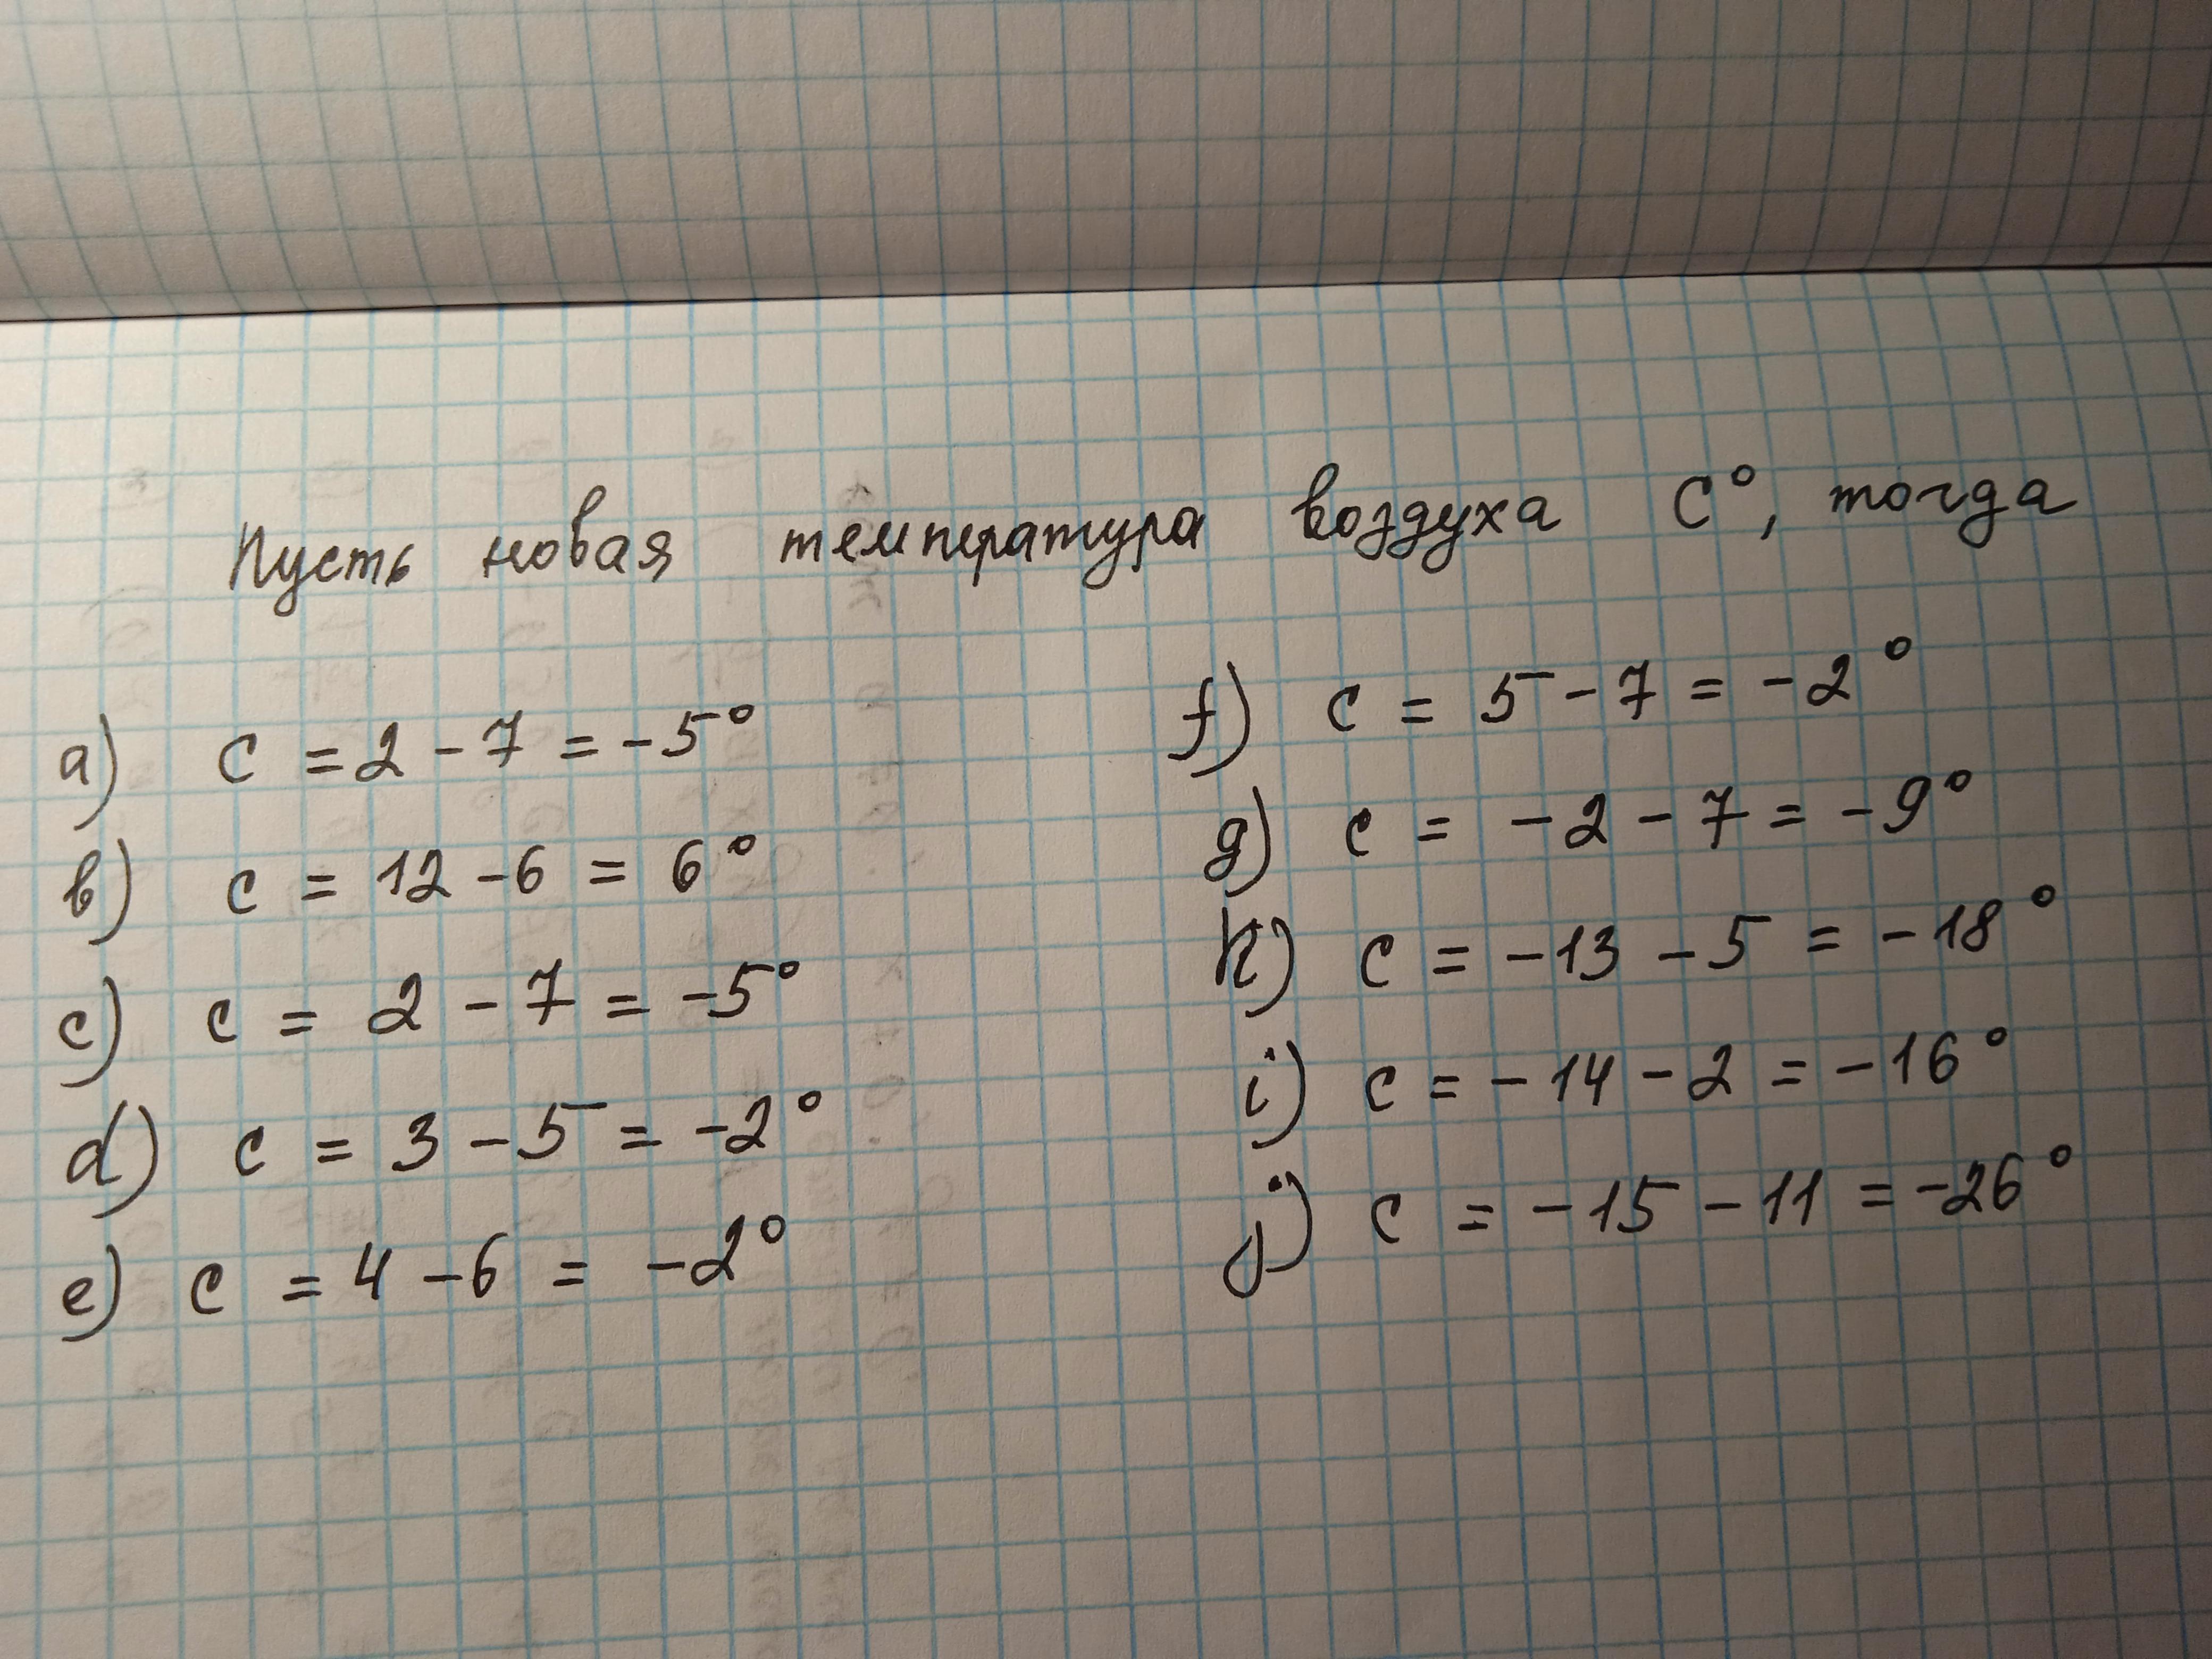 Пусть новая температура воздуха C°, тогда
a) c = 2 - 7 = -5°
b) c = 12 - 6 = 6°
c) c = 2 - 7 = -5°
d) c = 3 - 5 = -2°
e) c = 4 - 6 = -2°
f) c = 5 - 7 = -2°
g) c = -2 - 7 = -9°
h) c = -13 - 5 = -18°
i) c = -14 - 2 = -16°
j) c = -15 - 11 = -26°